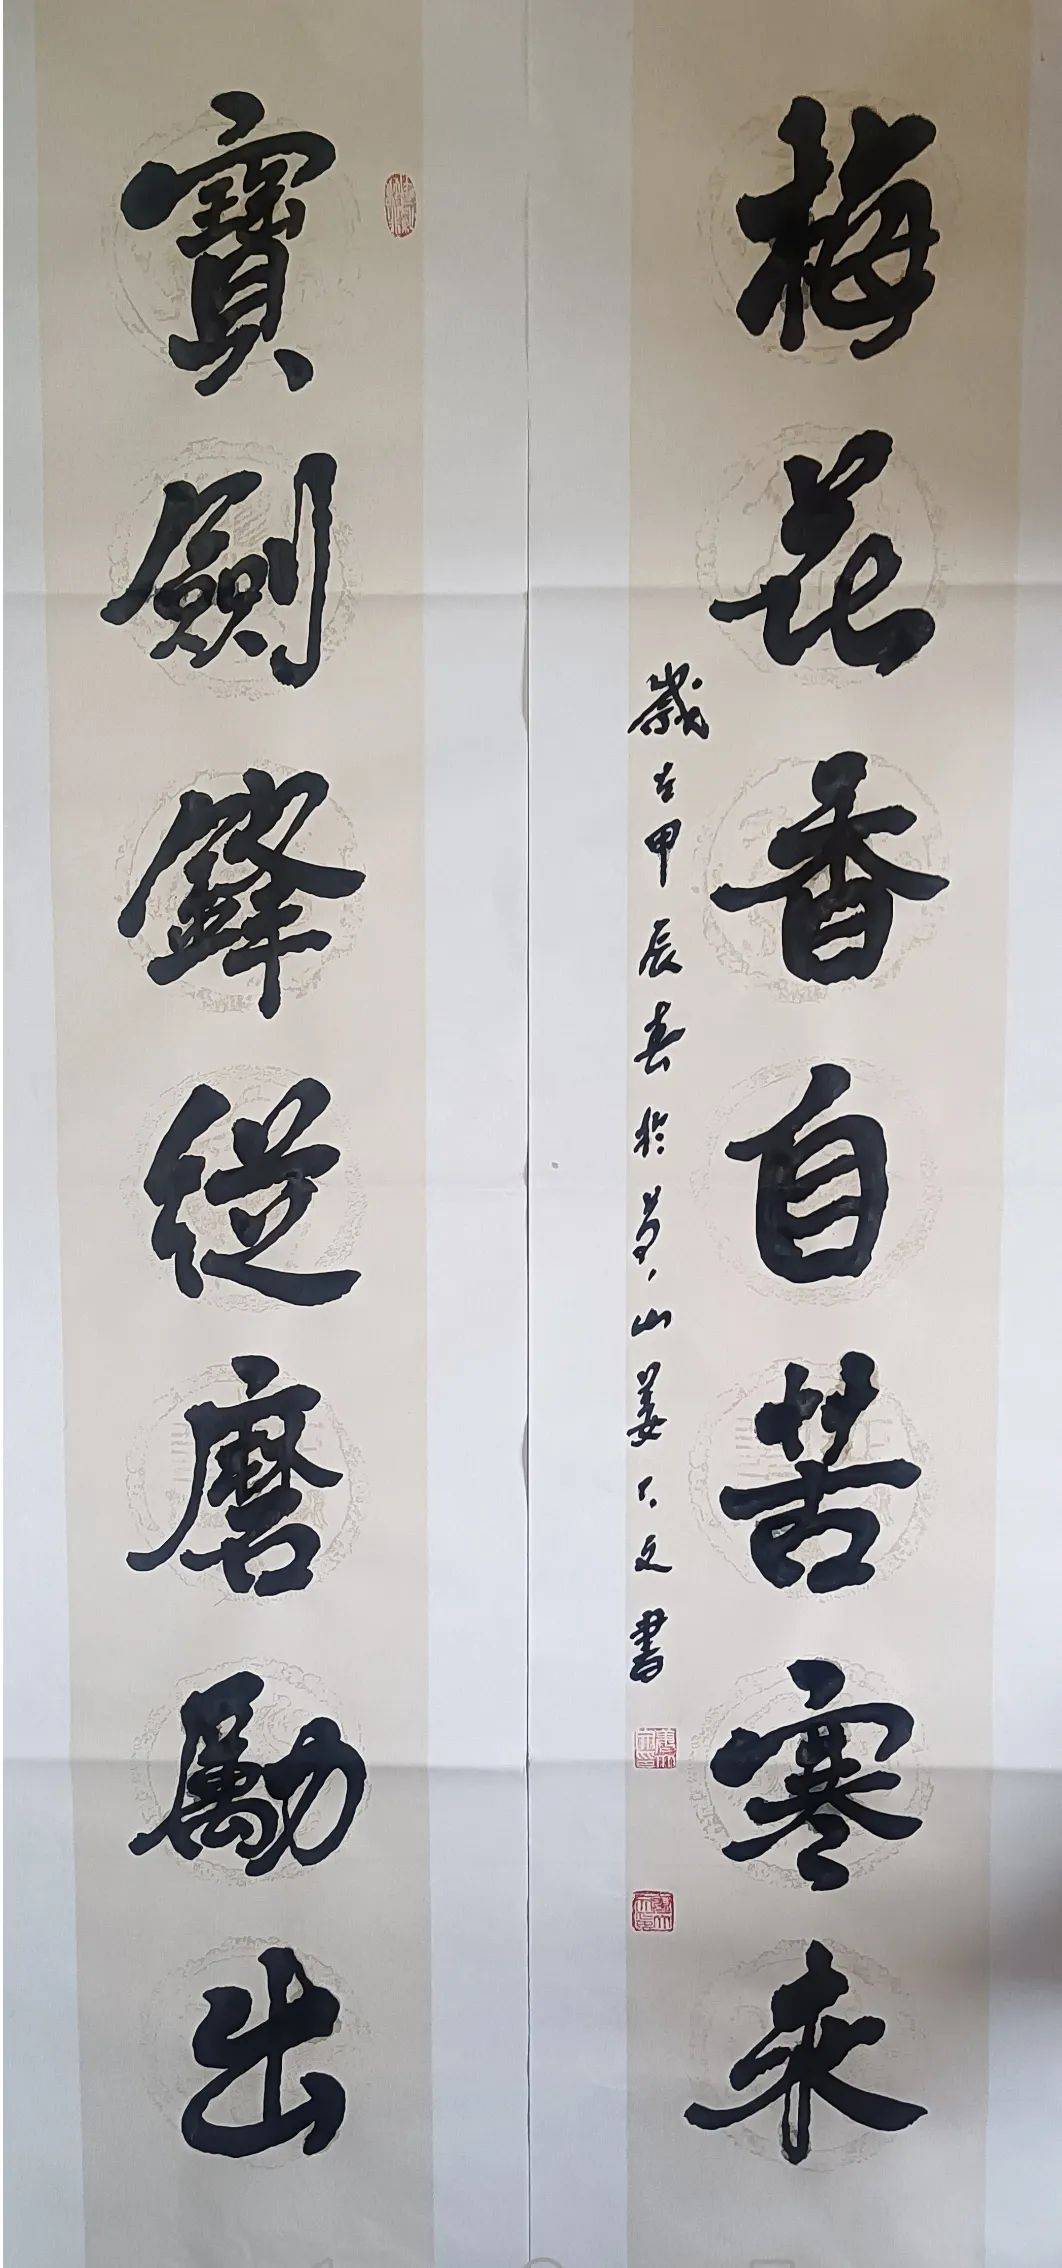 寶劍鋒從磨勵出
梅花香自苦寒來
歲在甲辰春於山姜文書